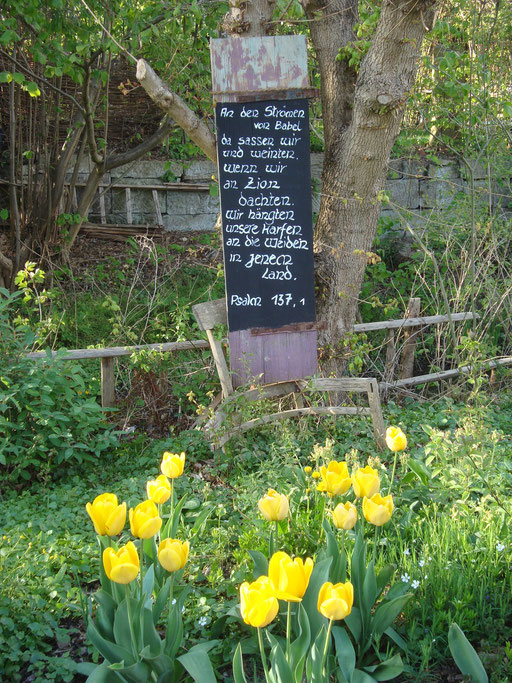 An den Strömen
von Babel
da sassen wir
und weinten,
wenn wir
an Zion
dachten.
Wir hängten
unsere Harfen
an die Weiden
in jenem
Land.
Psalm 137,1